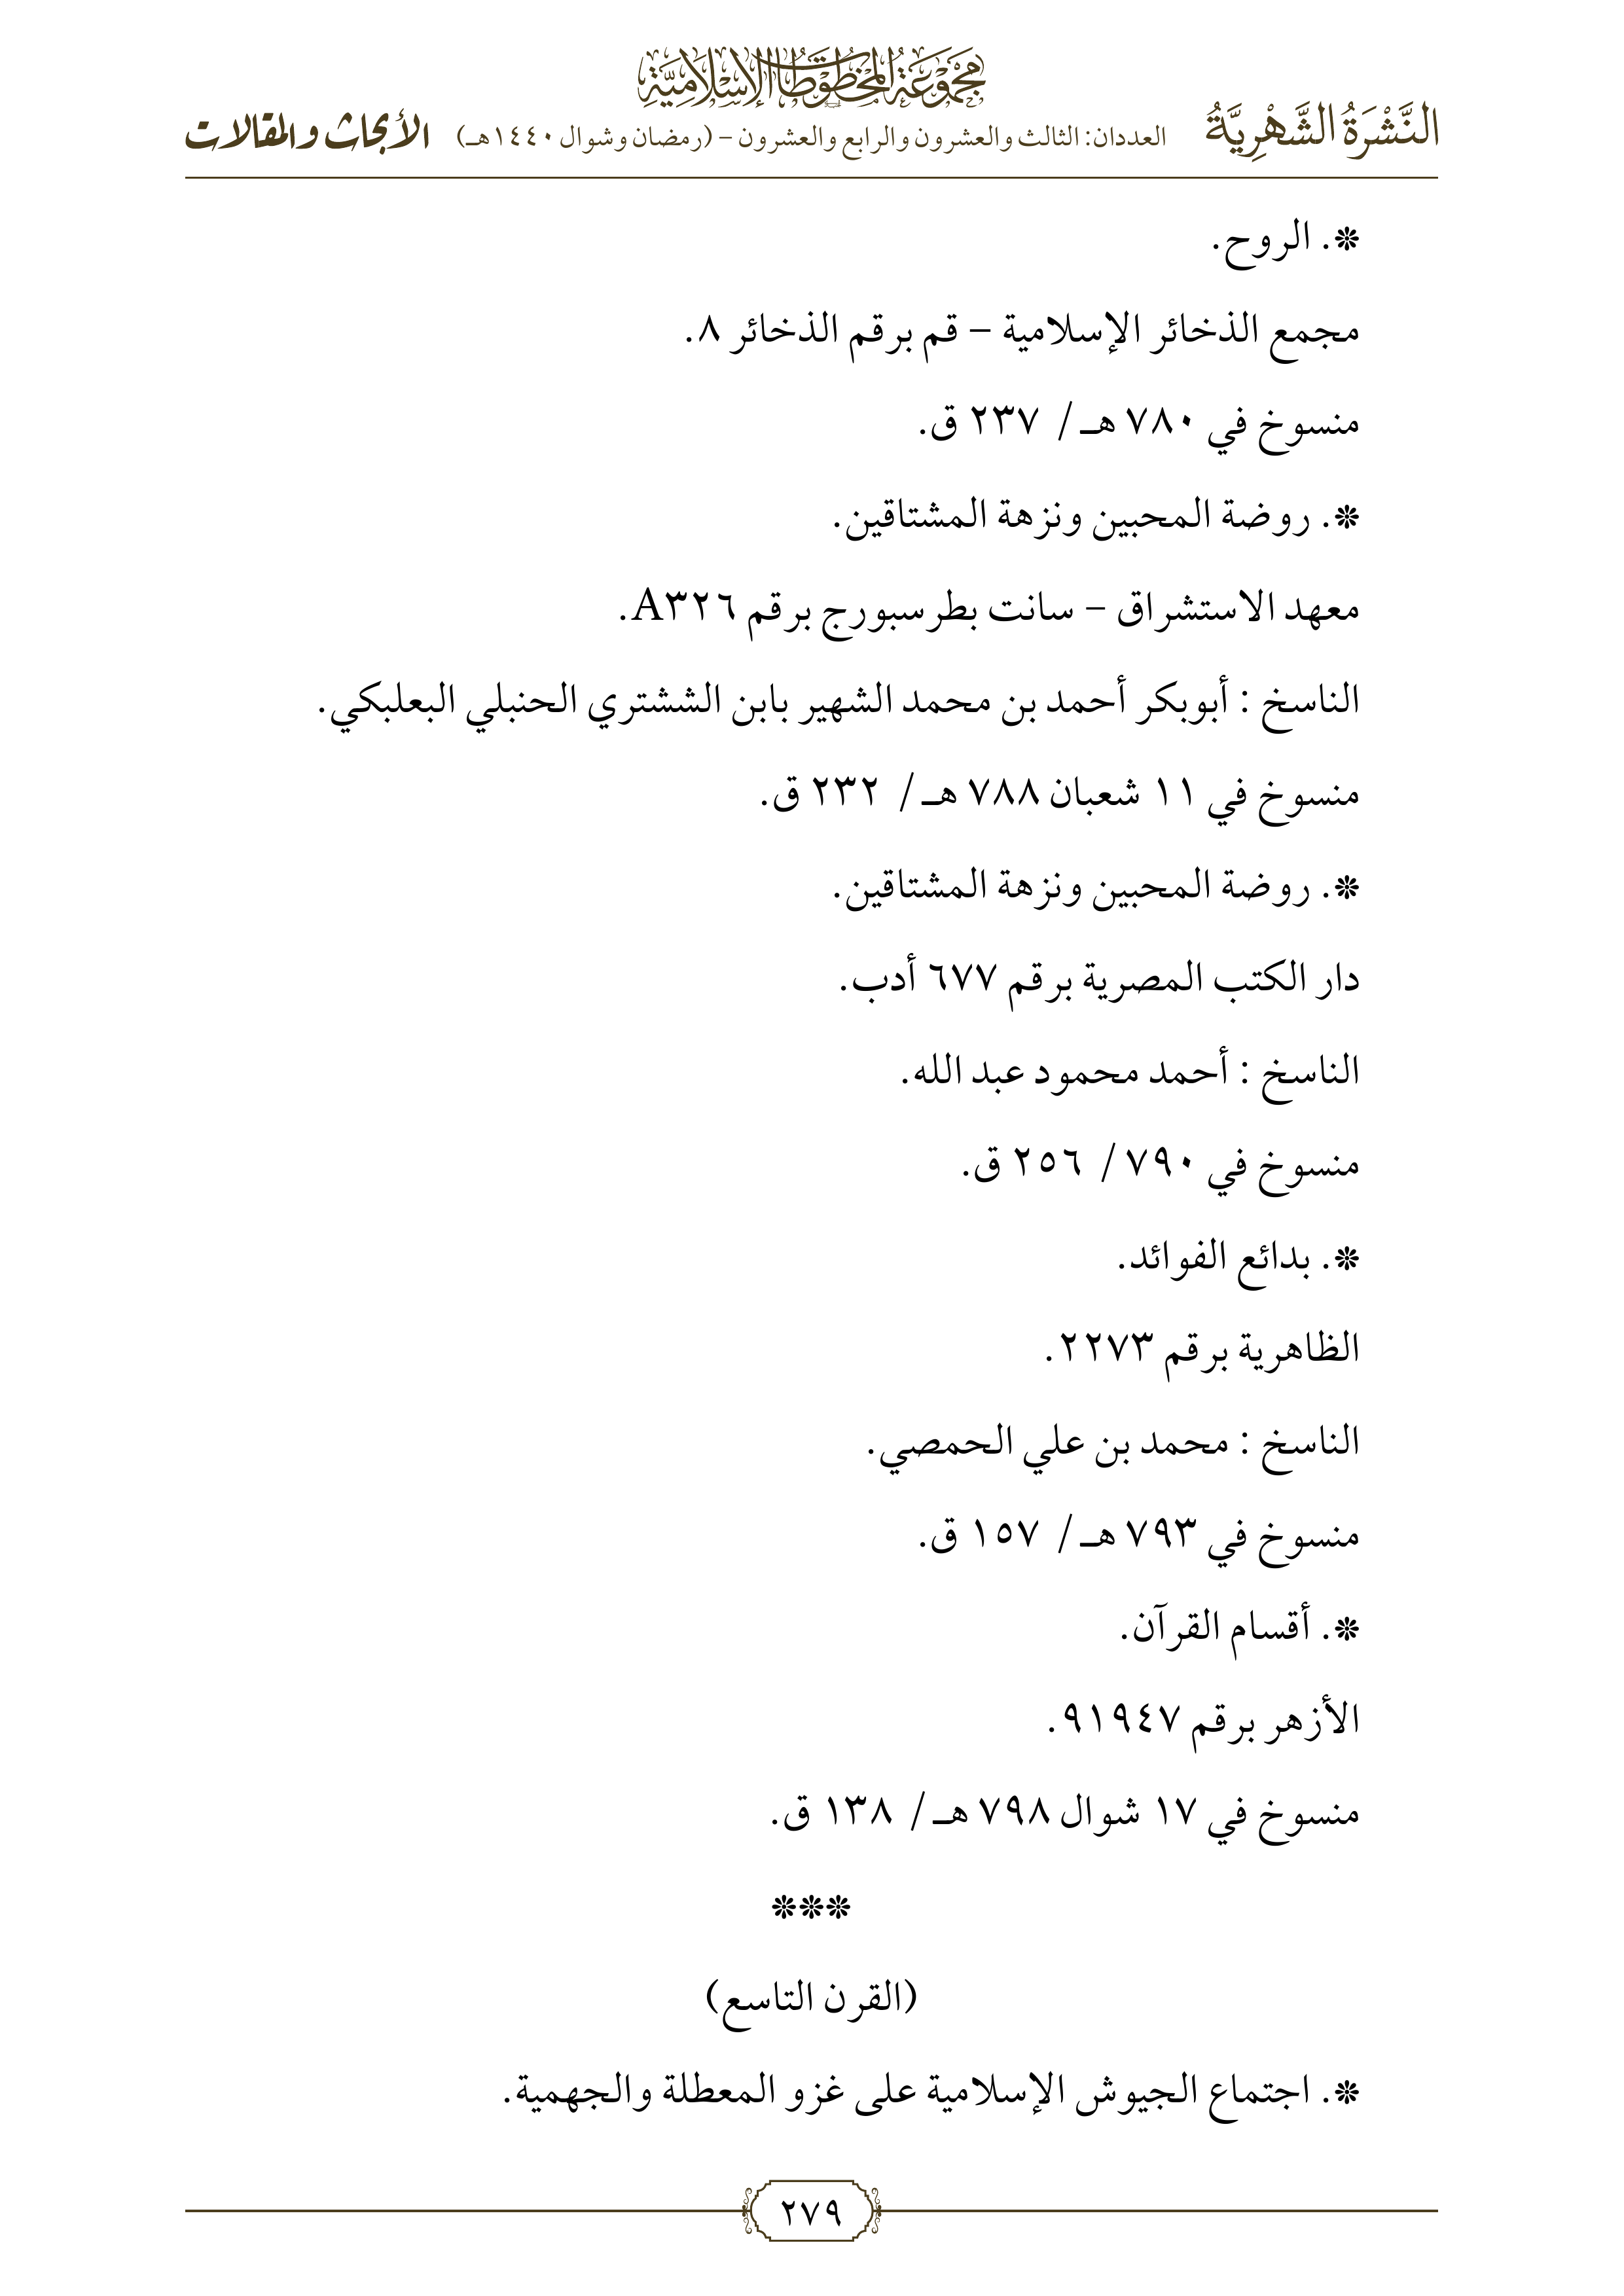 مجموعة المخطوطات الإسلامية
النَّشْرَةُ الشَّهْرِيَّةُ العددان: الثالث والعشرون والرابع والعشرون – (رمضان وشوال ١٤٤٠هـ) الأبحاث والمقالات
❊. الروح.
مجمع الذخائر الإسلامية – قم برقم الذخائر ٨.
منسوخ في ٧٨٠ هـ / ٢٣٧ ق.
❊. روضة المحبين ونزهة المشتاقين.
معهد الاستشراق – سانت بطرسبورج برقم A٣٢٦.
الناسخ : أبوبكر أحمد بن محمد الشهير بابن الششتري الحنبلي البعلبكي.
منسوخ في ١١ شعبان ٧٨٨ هـ / ٢٣٢ ق.
❊. روضة المحبين ونزهة المشتاقين.
دار الكتب المصرية برقم ٦٧٧ أدب.
الناسخ : أحمد محمود عبد الله.
منسوخ في ٧٩٠ / ٢٥٦ ق.
❊. بدائع الفوائد.
الظاهرية برقم ٢٢٧٣.
الناسخ : محمد بن علي الحمصي.
منسوخ في ٧٩٣ هـ / ١٥٧ ق.
❊. أقسام القرآن.
الأزهر برقم ٩١٩٤٧.
منسوخ في ١٧ شوال ٧٩٨ هـ / ١٣٨ ق.
❊❊❊
(القرن التاسع)
❊. اجتماع الجيوش الإسلامية على غزو المعطلة والجهمية.
٢٧٩